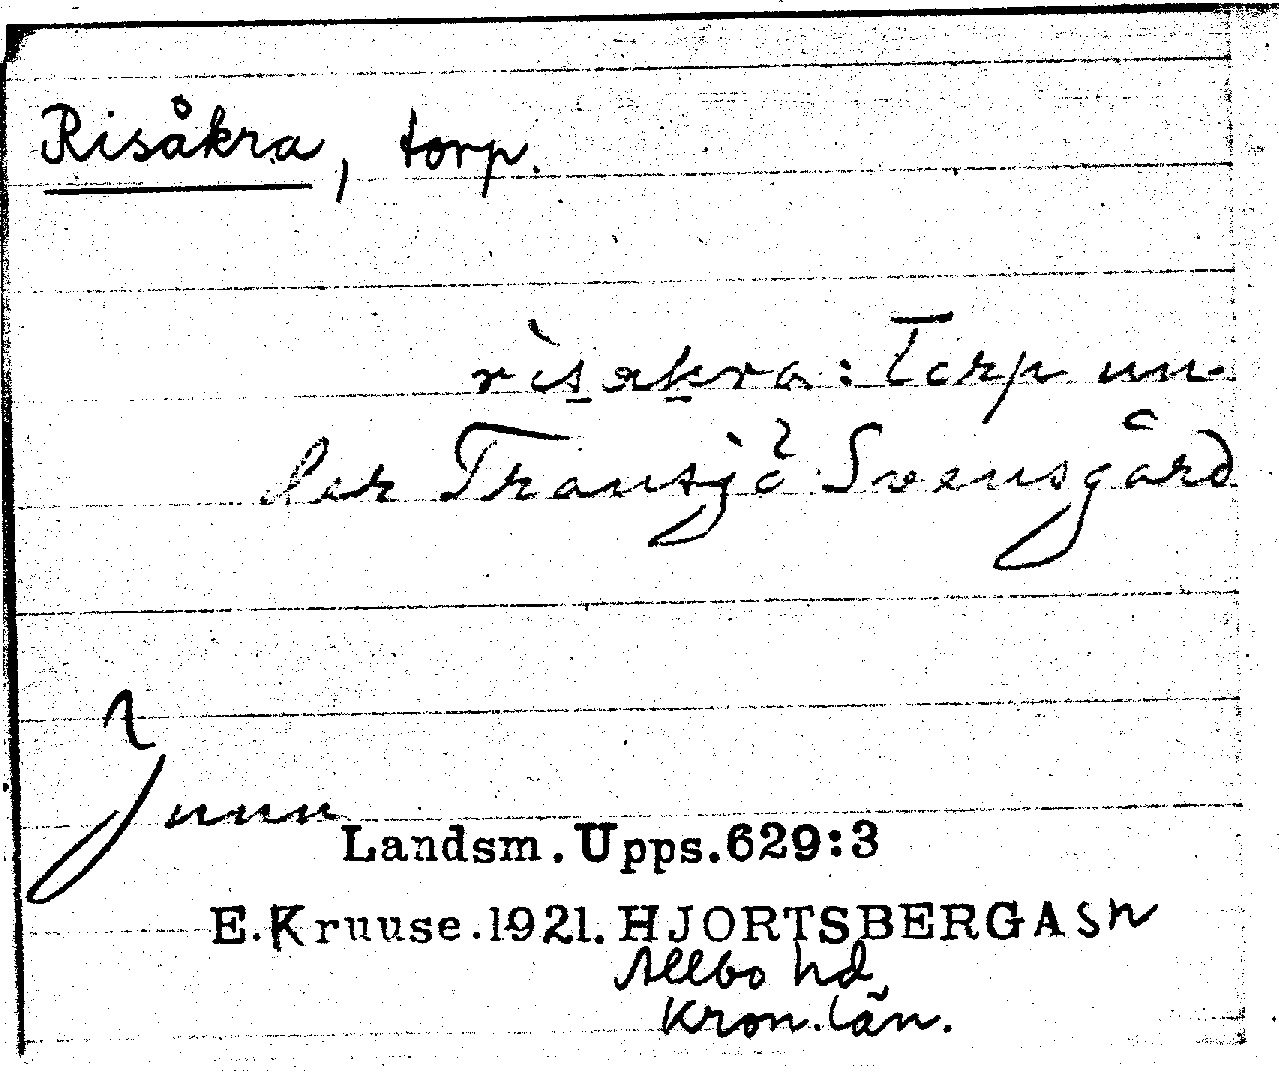 Risåkra, torp.
rìsakra: Torp un-
der Transjö Svensgård
Junu
Landsm. Upps. 629:3
E. Kruuse. 1921. HJORTSBERGA sn
Allbo hd,
Kron. län.